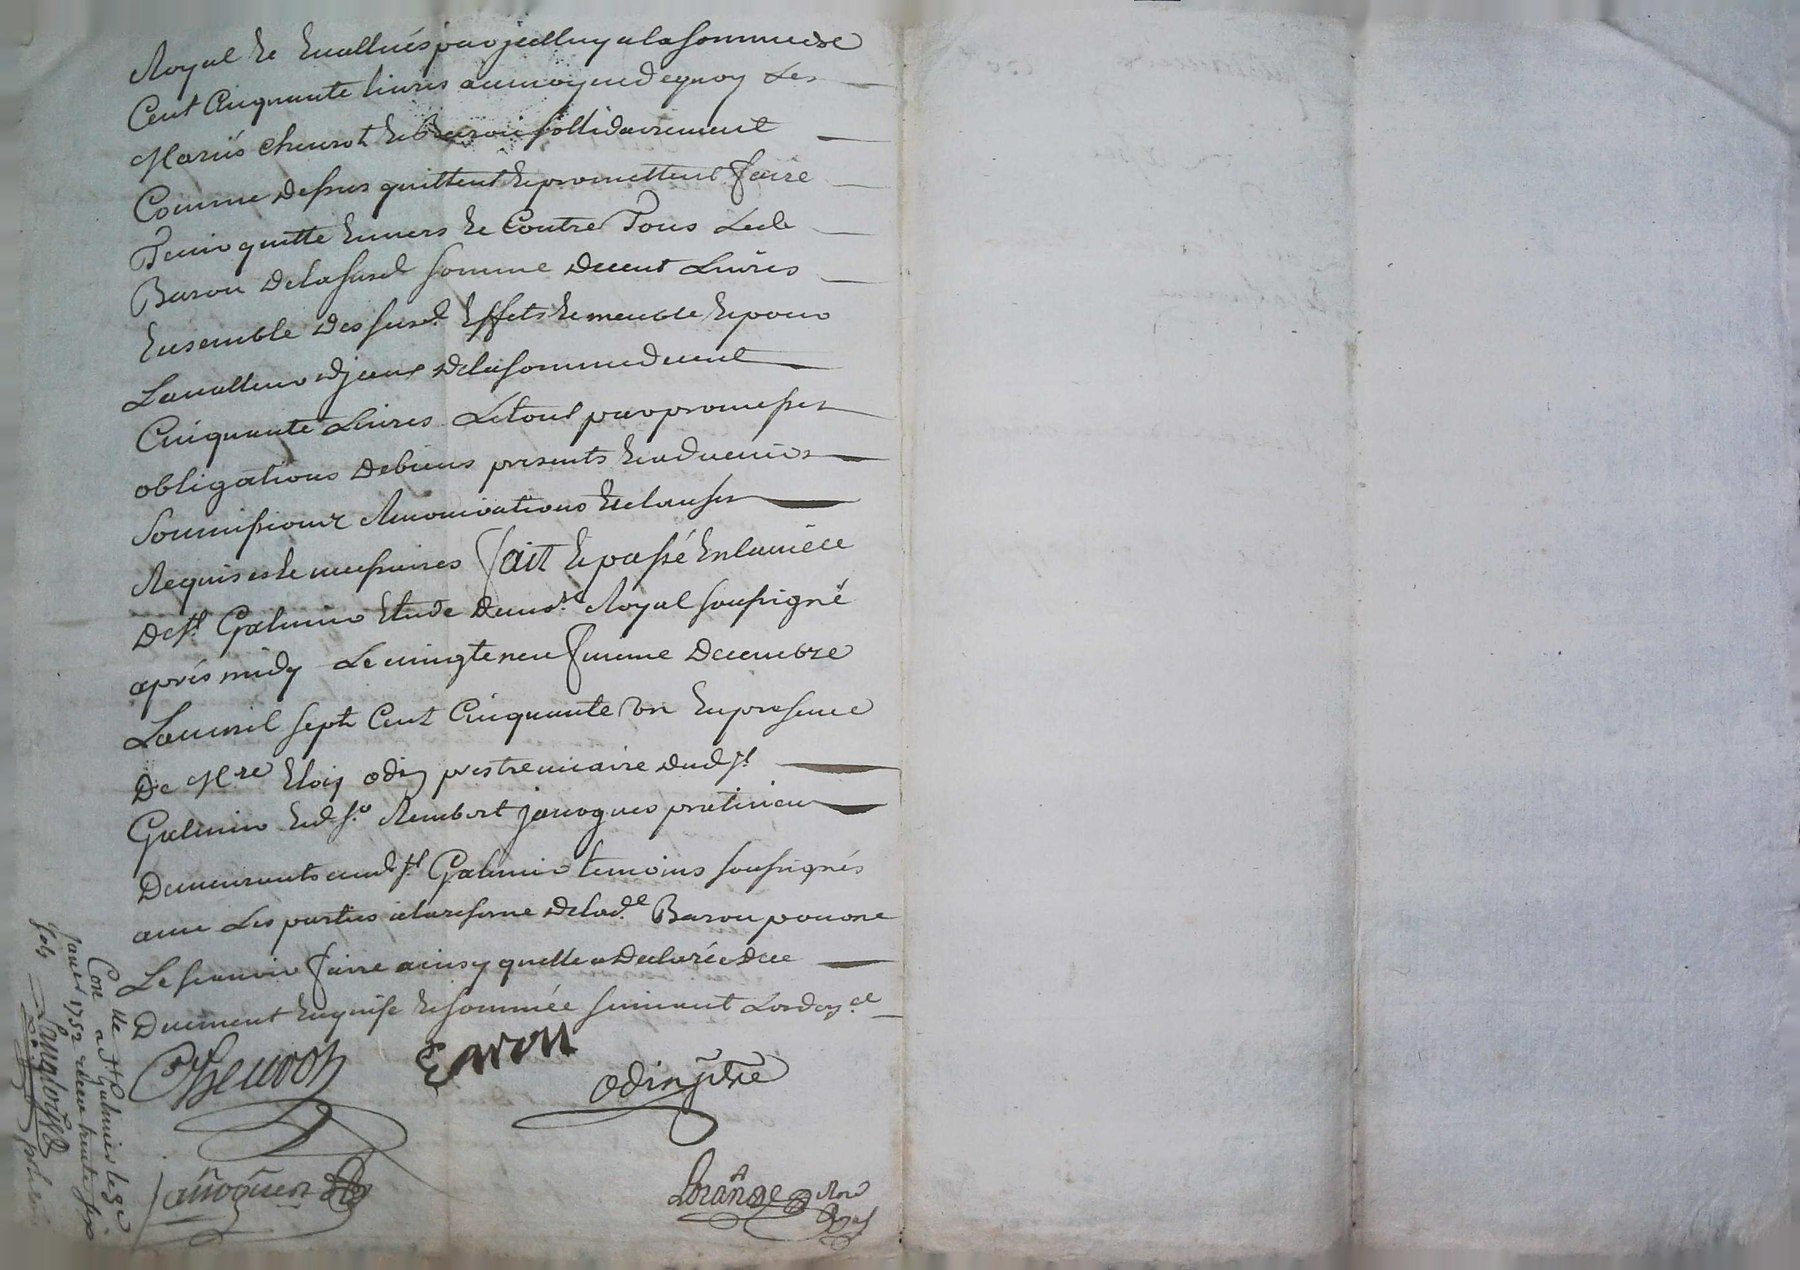 Royal & Evallués par jcelluy a la somme de
Cent Cinquante livres au moyen de quoy Les
Mariés Chenrot & Baron sollidairement
Comme dessus quittent & promettent faire
Tenir quitte Envers & Contre Tous Led
Baron de la susd somme de cent Livres
Ensemble des susd. Effets & meuble & pour
La valleur djceux de la somme de cent
Cinquante Livres Le tout par promesses
obligations de biens presents & a devenir
soumissions Renonciations & clauses
Requises & necessaires fait & passé En la ville
de St Galmier Etude du nore Royal soussigné
aprés midy Le vingt neufvieme decembre
L'an mil sept Cent Cinquante un En presence
De Mre Eloy odin prestre vicaire dud St
Galmier & de sr Rembert janogues praticien
Demeurants aud St Galmier temoins soussignés
avec Les parties a la reserve de lade Baron pour ne
Le scavoir faire ainsy quelle a declarée de ce
Duement Enquise & sommée suivant Lordoce
Chenrot
Baron
odin ptre
janoguer
Lorange Nore
Royal
Conlle a St Galmier le 3e
janer 1752 receu trente six
sols
Langlois